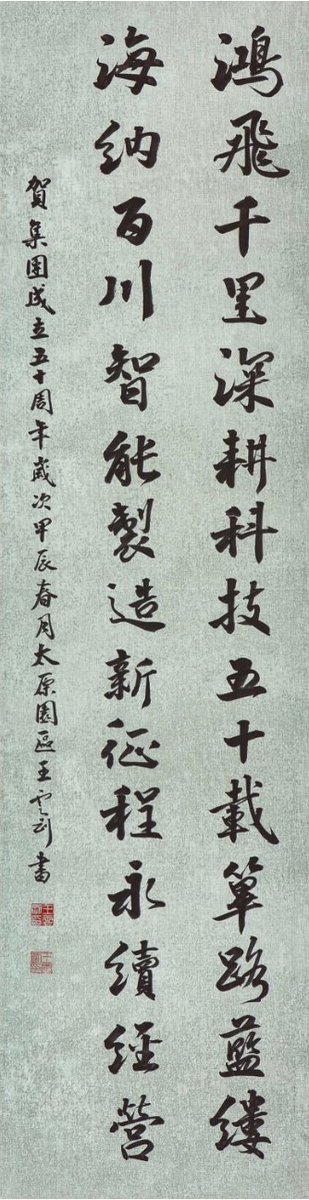 鴻飛千里深耕科技五十載篳路藍縷
海納百川智能製造新征程永續經營
賀集團成立五十周年歲次甲辰春月太原園區王書